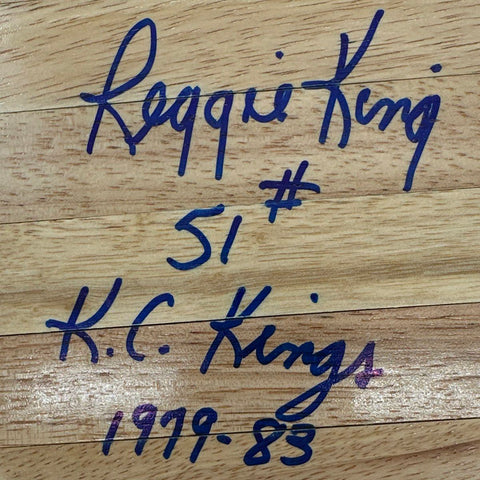 Reggie King
51#
K.C. Kings
1979-83